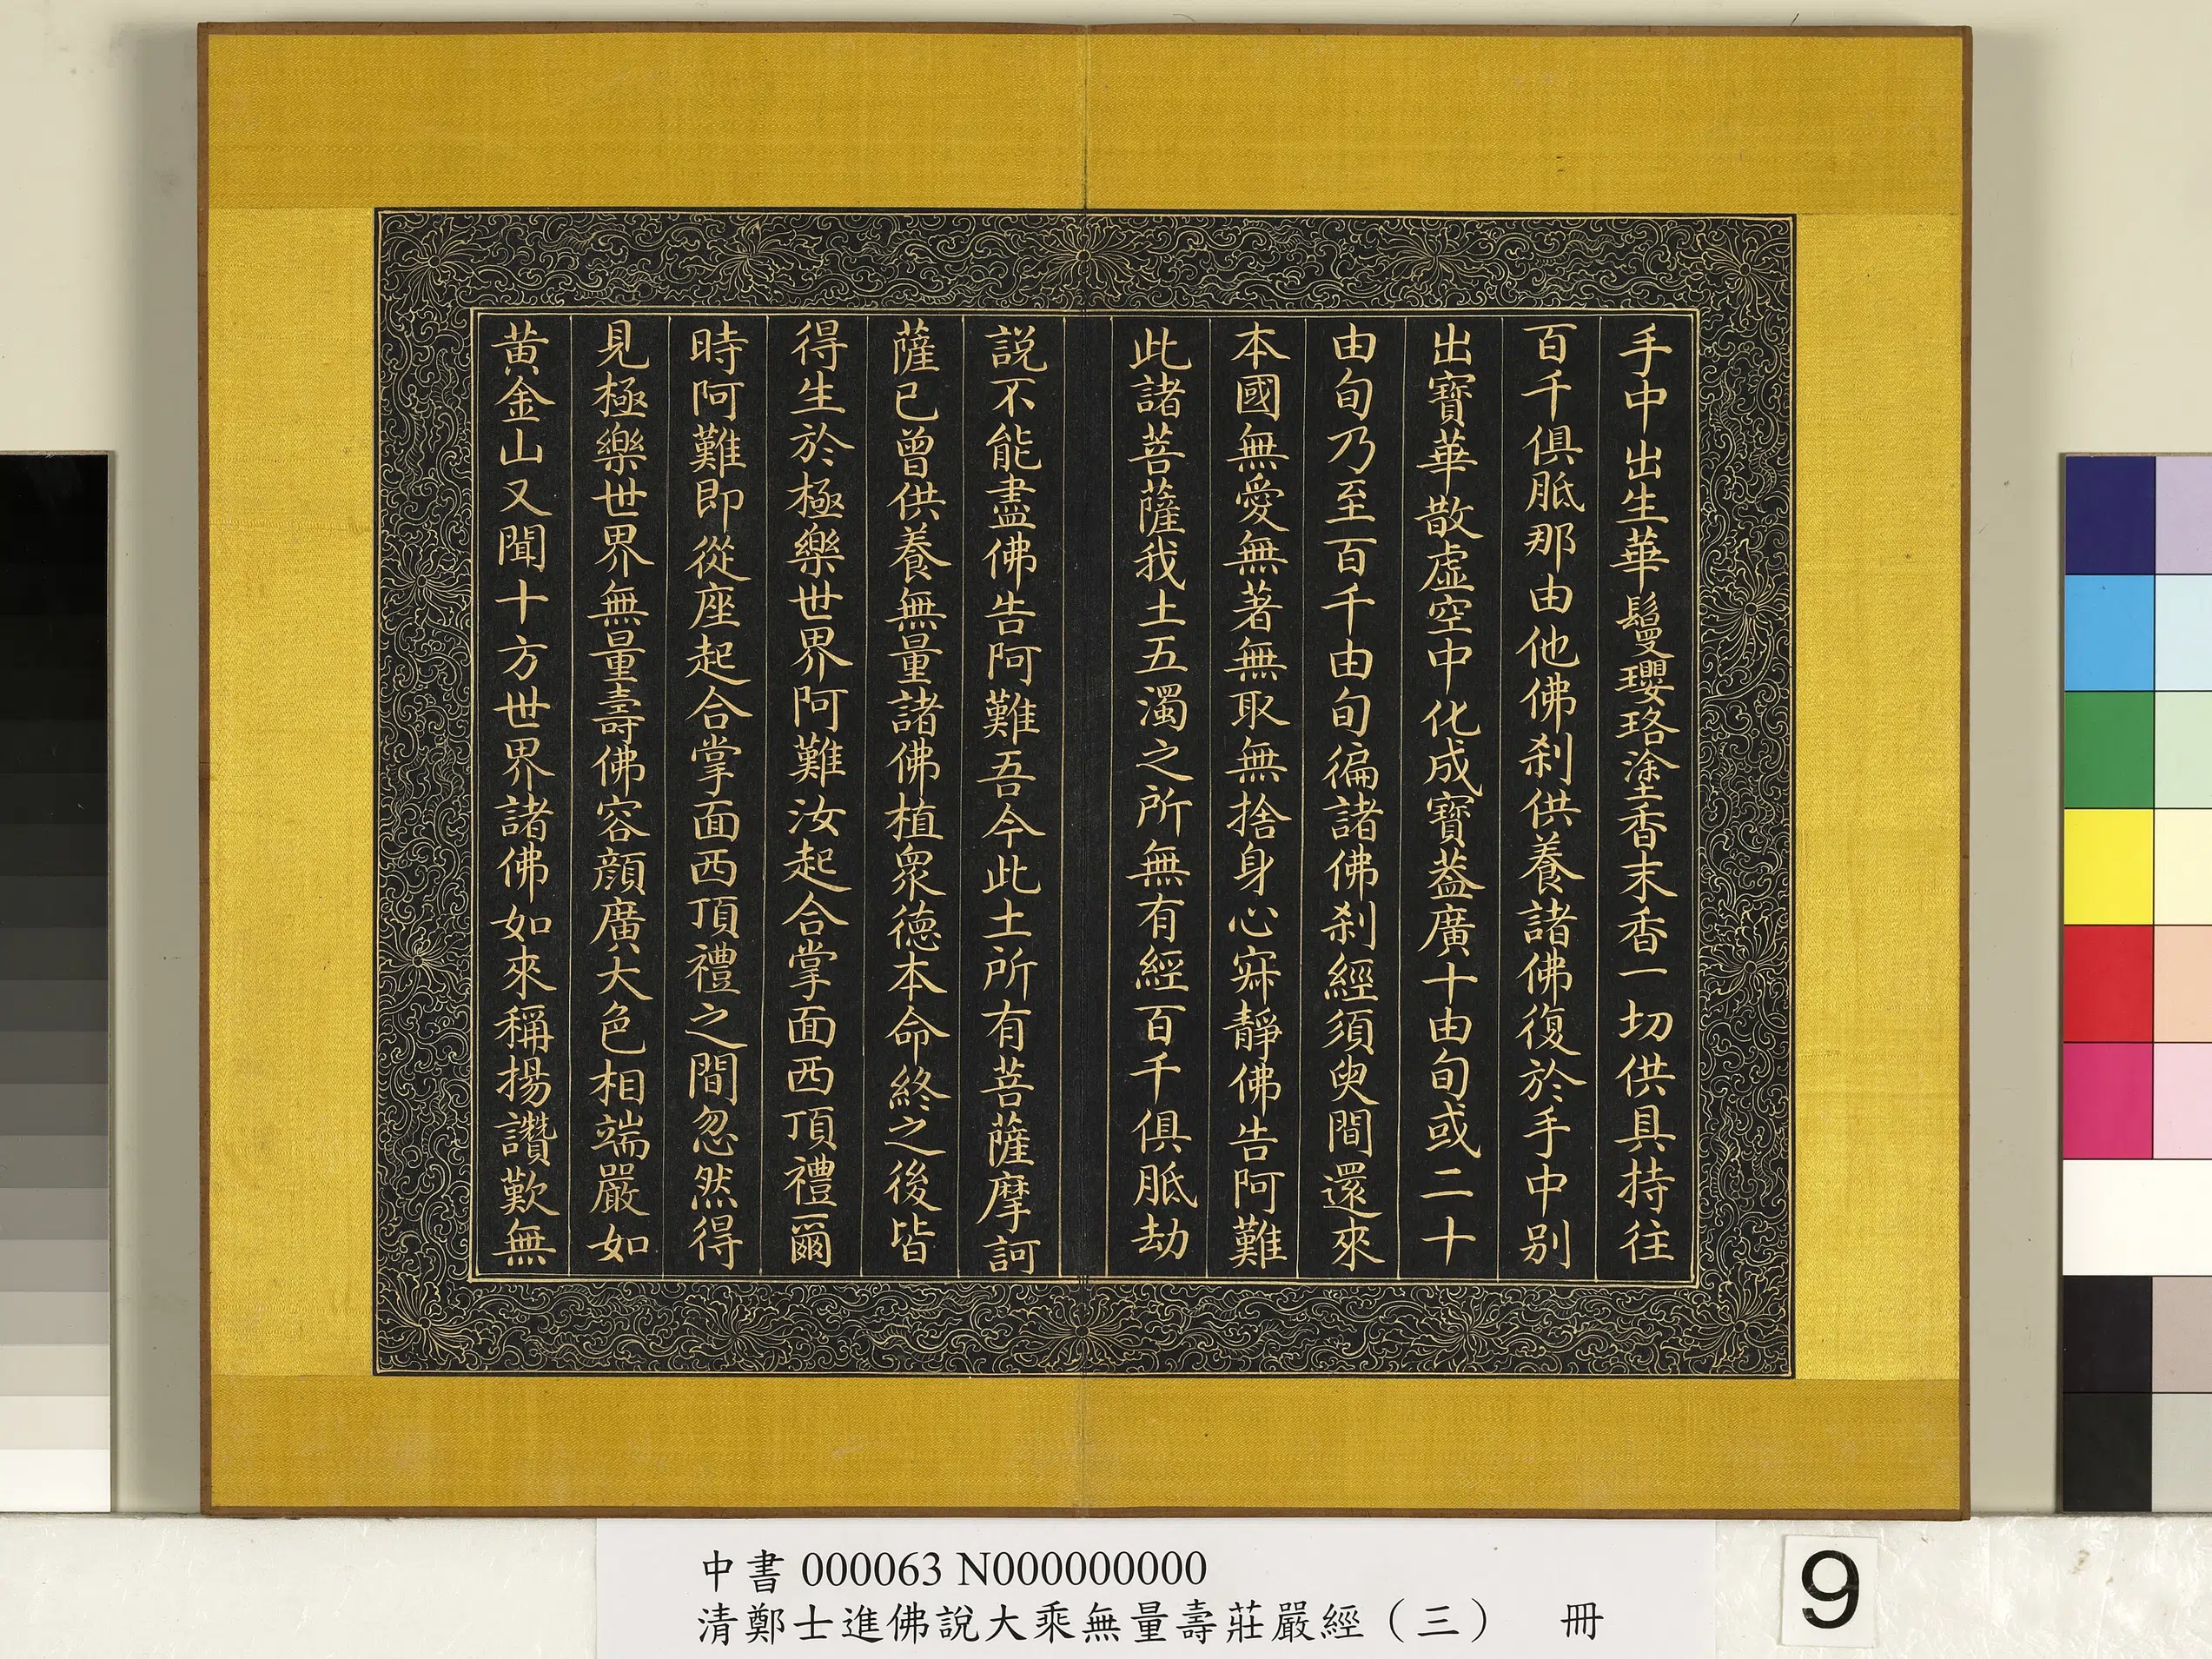 手中出生華鬘瓔珞塗香末香一切供具持往
百千俱胝那由他佛刹供養諸佛復於手中別
出寶華散虛空中化成寶蓋廣十由旬或二十
由旬乃至百千由旬徧諸佛刹經須臾間還來
本國無愛無著無取無捨身心寂靜佛告阿難
此諸菩薩我土五濁之所無有經百千俱胝劫
説不能盡佛告阿難吾今此土所有菩薩摩訶
薩已曾供養無量諸佛植衆德本命終之後皆
得生於極樂世界阿難汝起合掌面西頂禮爾
時阿難即從座起合掌面西頂禮之間忽然得
見極樂世界無量壽佛容顔廣大色相端嚴如
黄金山又聞十方世界諸佛如來稱揚讚歎無
中書 000063 N000000000
清鄭士進佛說大乘無量壽莊嚴經（三） 冊
9